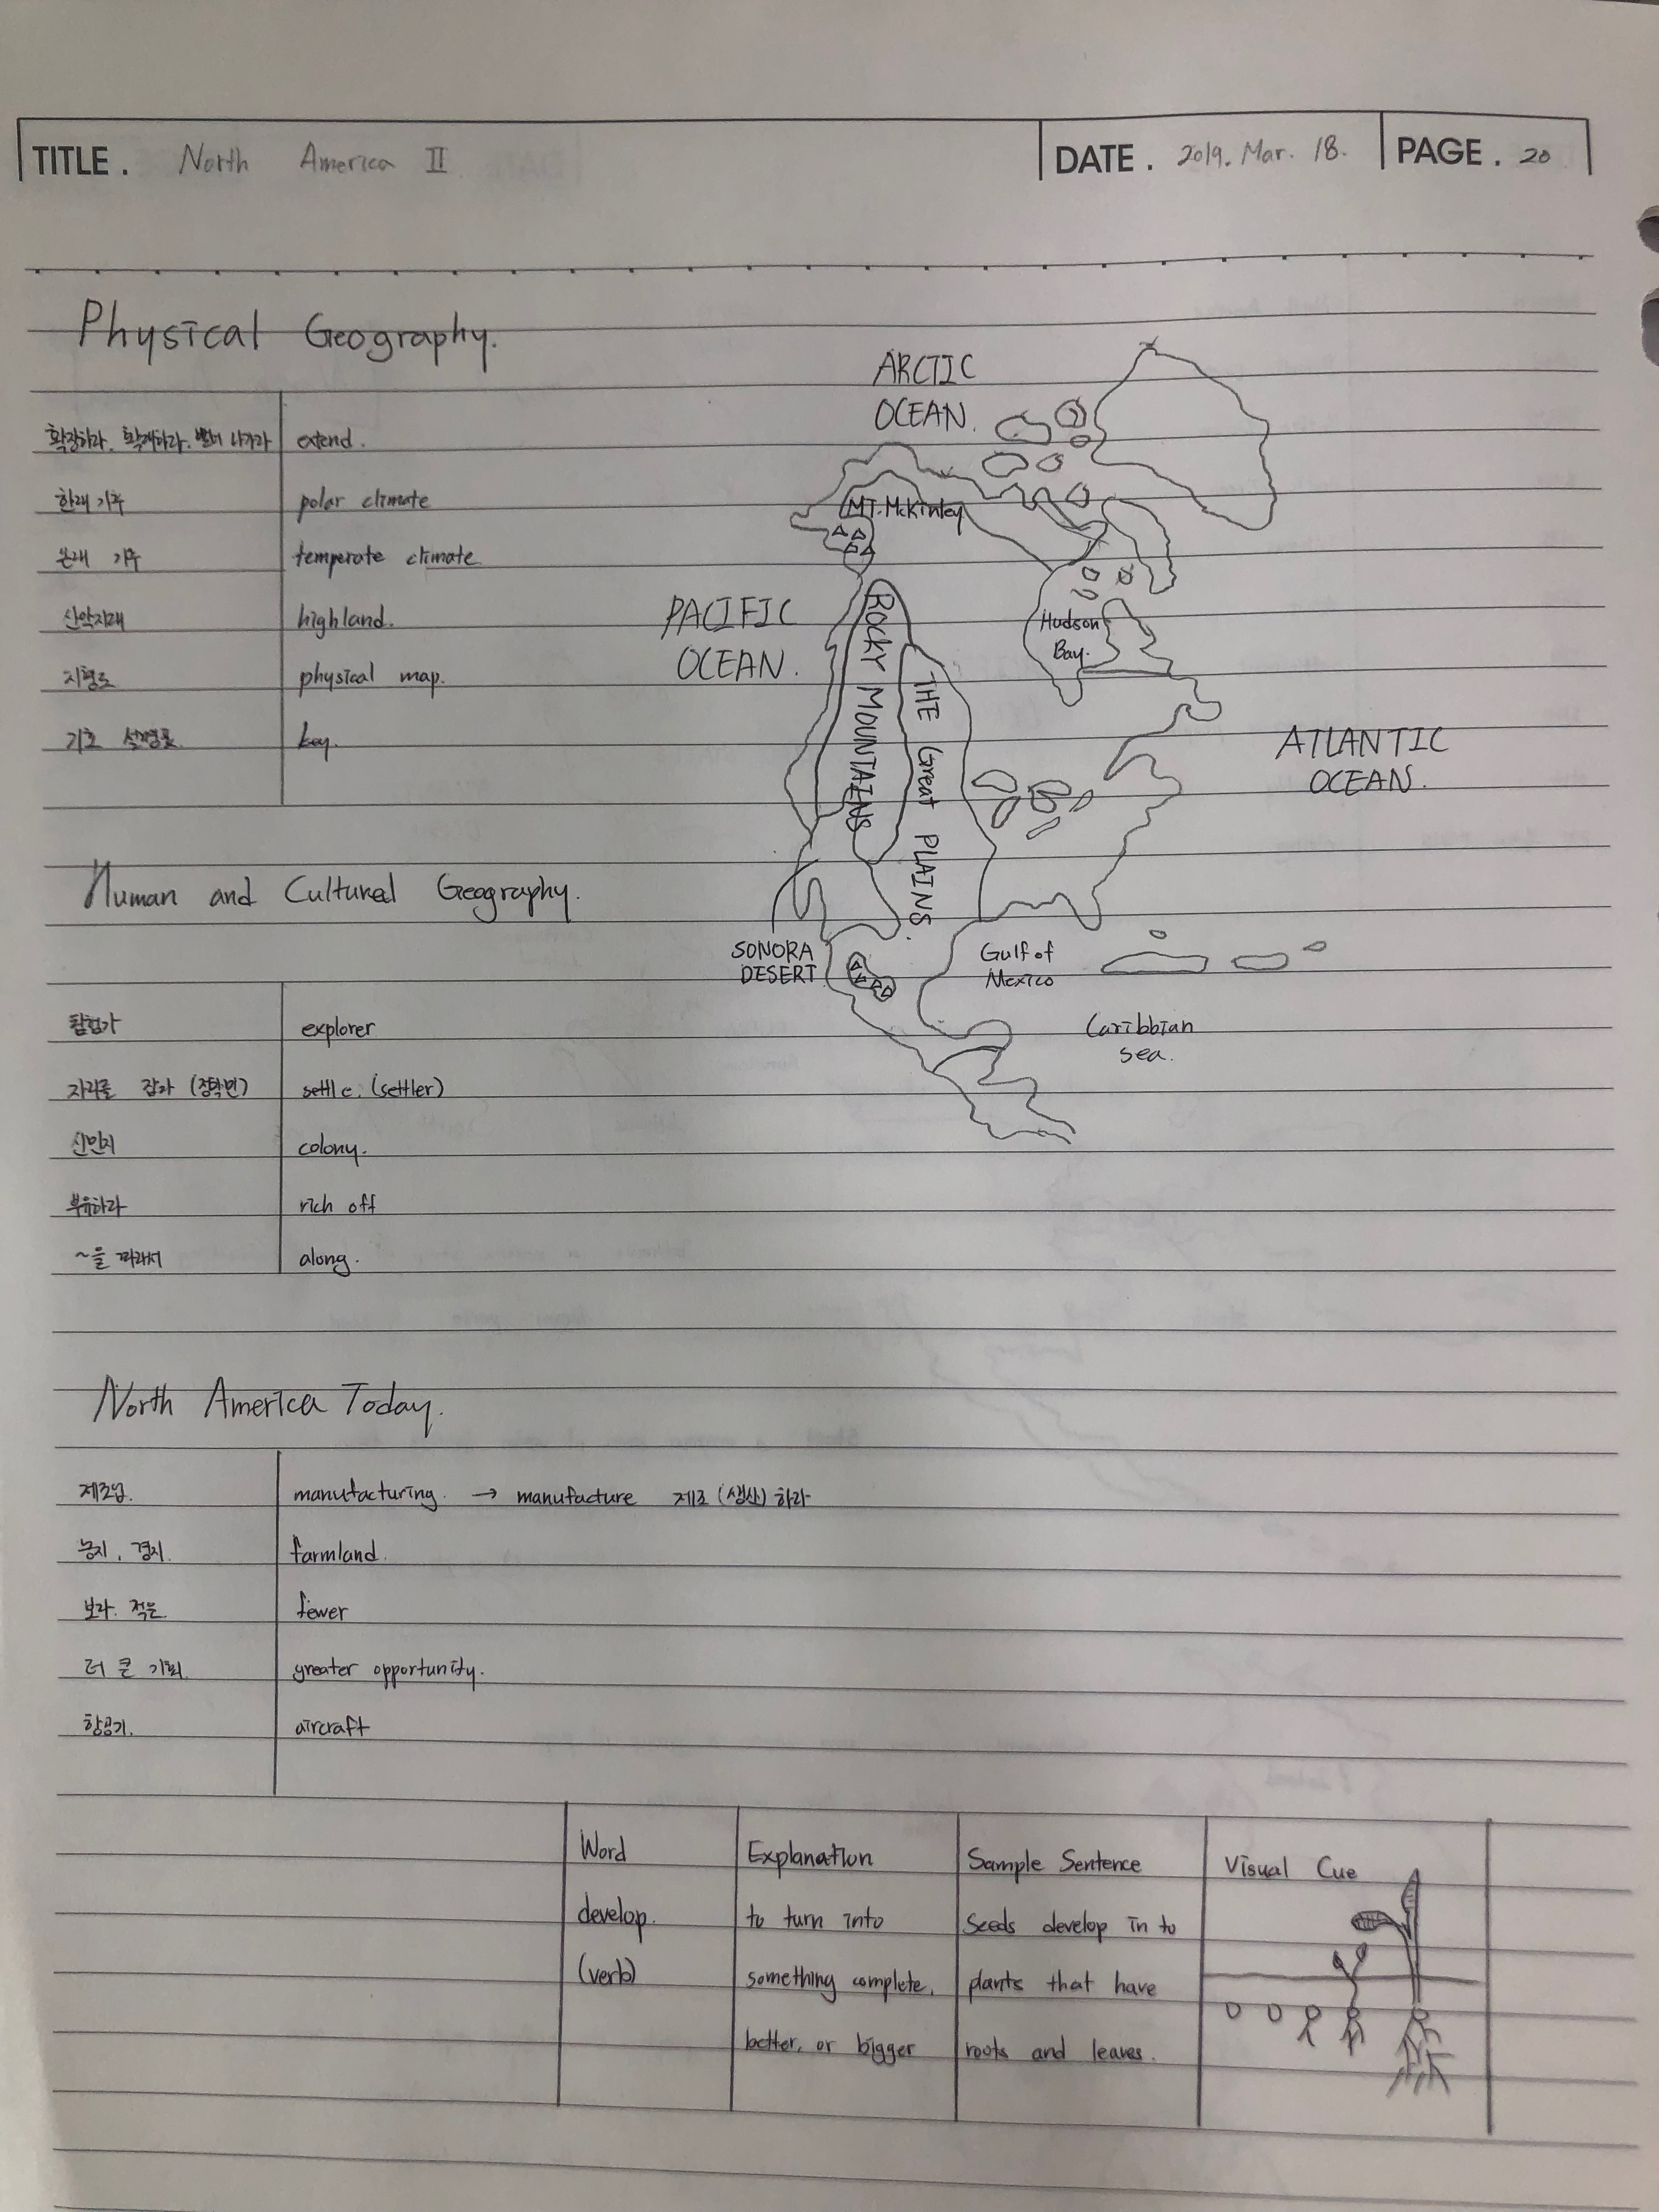 TITLE. North America II DATE. 2019. Mar. 18. PAGE. 20
Physical Geography.
확장하라. 확대하라. 뻗어 나가라 extend.
한대 기후 polar climate
온대 기후 temperate climate
산악지대 highland.
지형도 physical map.
기호 설명표 key.
ARCTIC
OCEAN.
MT. McKinley
PACIFIC
OCEAN.
ROCKY MOUNTAINS
THE Great PLAINS.
Hudson
Bay.
ATLANTIC
OCEAN.
SONORA
DESERT
Gulf of
Mexico
Caribbian
sea.
Human and Cultural Geography.
탐험가 explorer
자리를 잡다 (정착민) settle. (settler)
식민지 colony.
부유하라 rich off
~을 따라서 along.
North America Today.
제조업. manufacturing. → manufacture 제조(생산)하라
농지, 경지. farmland.
보다. 적은 fewer
더 큰 기회 greater opportunity.
항공기. aircraft
Word Explanation Sample Sentence Visual Cue
develop. to turn into Seeds develop in to
(verb) something complete, plants that have
better, or bigger roots and leaves.